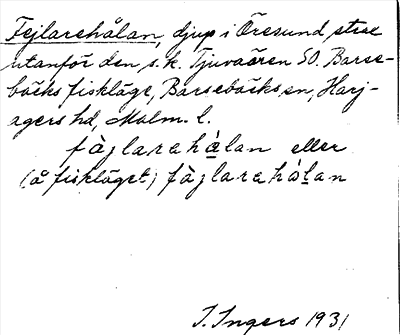 Fejlarehålan, djup i Öresund strax
utanför den s.k. Tjuvaören SO. Barse-
bäcks fiskläge, Barsebäcks sn, Harj-
agers hd, Malm. l.
fàjlarehålan eller
(å fiskläget) fàjlarahólan
I. Ingers 1931